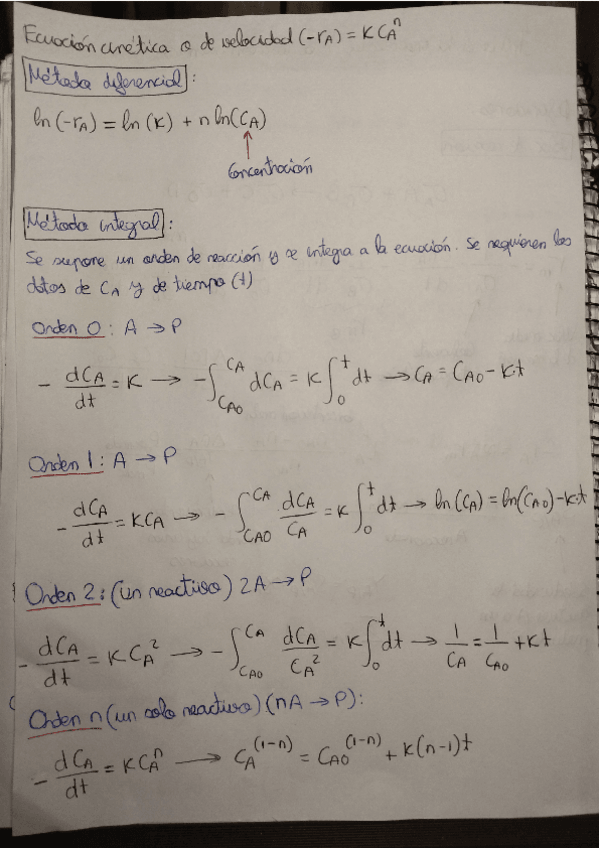 Ecuación cinética o de velocidad (-rA) = K CA^n
Método diferencial:
ln(-rA) = ln(K) + n ln(CA)
Concentración
Método integral:
Se supone un orden de reacción y se integra a la ecuación. Se requieren los
datos de CA y de tiempo (t)
Orden 0: A → P
- dCA/dt = K → -∫_CA0^CA dCA = K ∫_0^t dt → CA = CA0 - Kt
Orden 1: A → P
- dCA/dt = KCA → -∫_CA0^CA dCA/CA = K ∫_0^t dt → ln(CA) = ln(CA0) - Kt
Orden 2: (un reactivo) 2A → P
- dCA/dt = K CA^2 → -∫_CA0^CA dCA/CA^2 = K ∫_0^t dt → 1/CA = 1/CA0 + Kt
Orden n (un solo reactivo) (nA → P):
- dCA/dt = KCA^n → CA^(1-n) = CA0^(1-n) + K(n-1)t